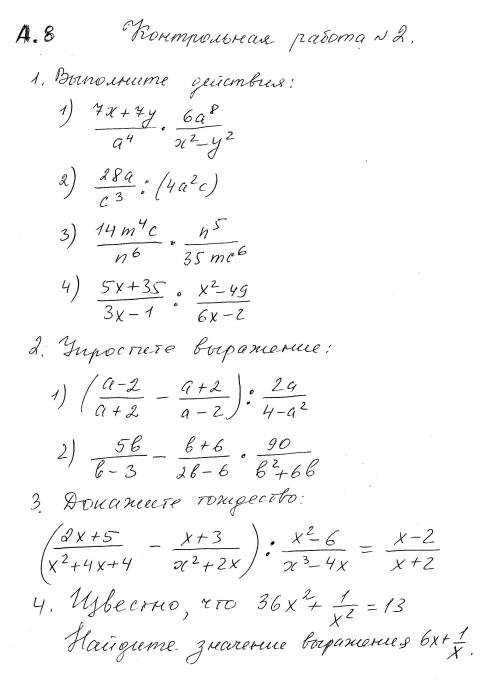 А.8 Контрольная работа №2.
1. Выполните действия:
1) (7x+7y)/a⁴ · 6a⁸/(x²−y²)
2) 28a/c³ : (4a²c)
3) 14m⁴c/n⁶ · n⁵/(35mc⁶)
4) (5x+35)/(3x−1) : (x²−49)/(6x−2)
2. Упростите выражение:
1) ((a−2)/(a+2) − (a+2)/(a−2)) : 2a/(4−a²)
2) 5b/(b−3) − (b+6)/(2b−6) · 90/(b²+6b)
3. Докажите тождество:
((2x+5)/(x²+4x+4) − (x+3)/(x²+2x)) : (x²−6)/(x³−4x) = (x−2)/(x+2)
4. Известно, что 36x² + 1/x² = 13
Найдите значение выражения 6x + 1/x.